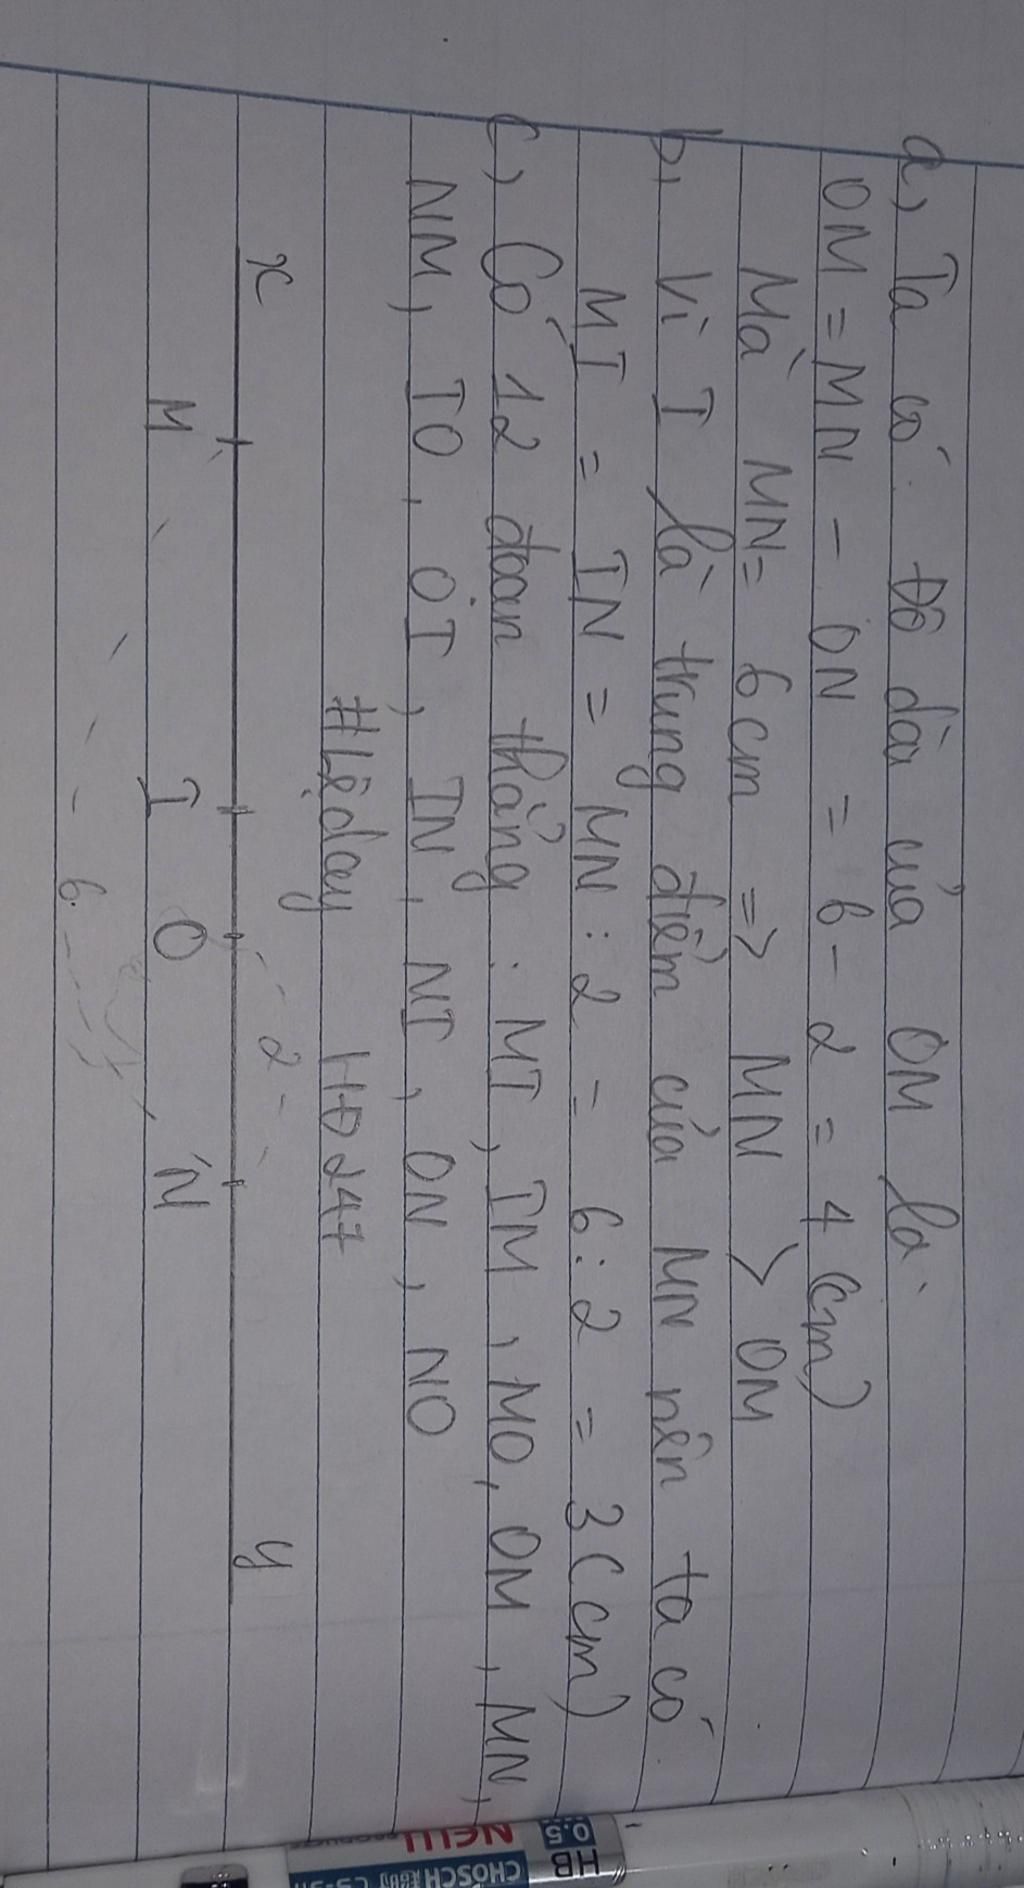 a, Ta có: Độ dài của OM là:
OM = MN - ON = 6 - 2 = 4 (cm)
Mà MN = 6cm => MN > OM
b, Vì I là trung điểm của MN nên ta có:
MI = IN = MN : 2 = 6 : 2 = 3 (cm)
c, Có 12 đoạn thẳng : MI, IM, MO, OM, MN,
NM, IO, OI, IN, NI, ON, NO
#Lệday HĐ247
x y
2
M I O N
6
HB
0.5
CHOSCH
NEW